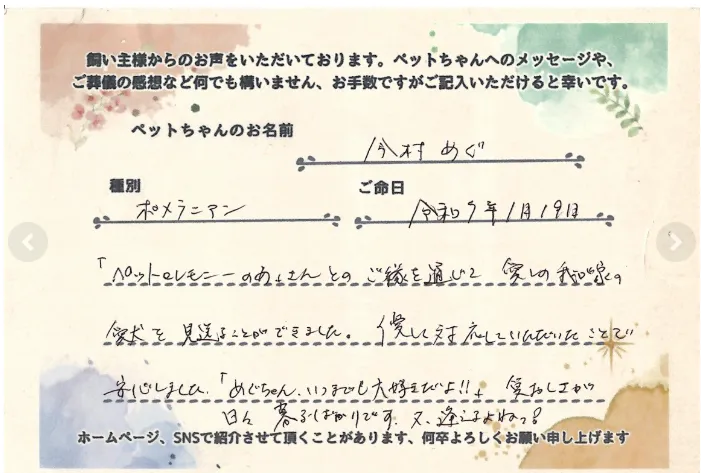 飼い主様からのお声をいただいております。ペットちゃんへのメッセージや、
ご葬儀の感想など何でも構いません、お手数ですがご記入いただけると幸いです。
ペットちゃんのお名前
今村 めぐ
種別
ご命日
ポメラニアン
令和7年1月19日
「ペットセレモニーのみなさんとのご縁を通じて 愛しの我が家の
愛犬を見送ることができました。優しく対応していただいたことで
安心しました。「めぐちゃん、いつまでも大好きだよ!!」 愛おしさが
日々 募るばかりです。又、逢えるよねっ?
ホームページ、SNSで紹介させて頂くことがあります、何卒よろしくお願い申し上げます